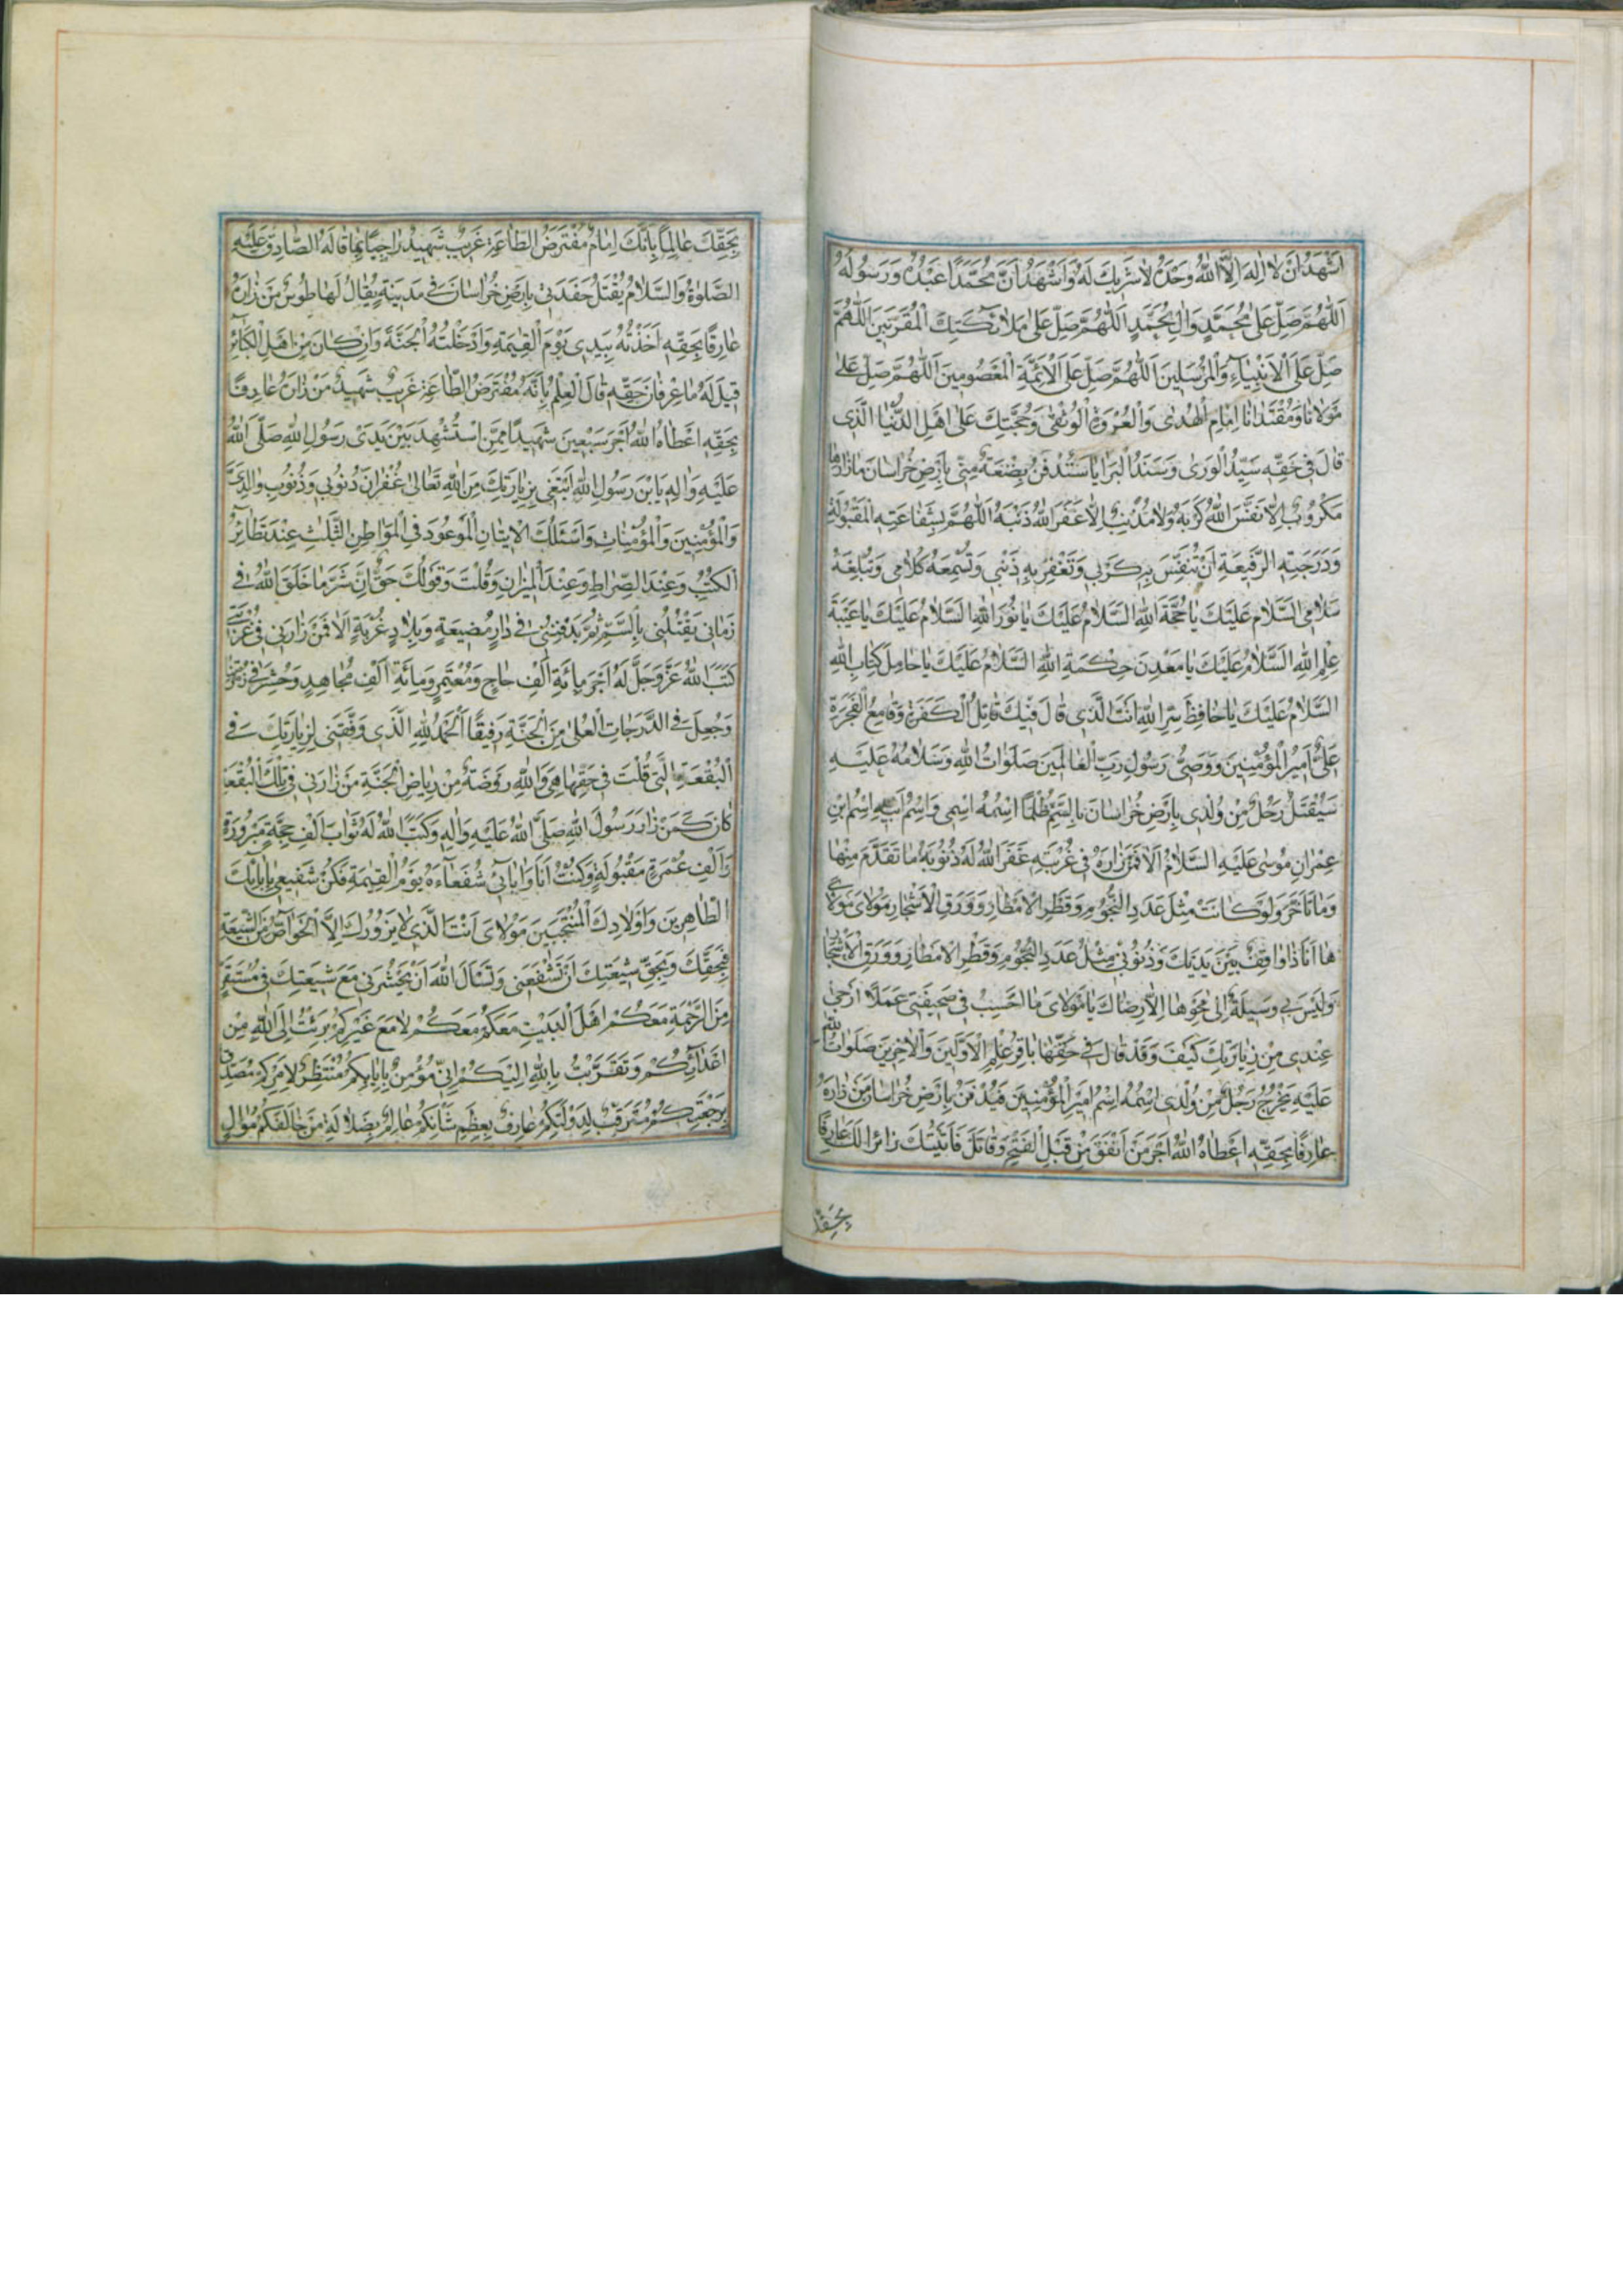 اَشْهَدُ اَنْ لا اِلهَ اِلَّا اللهُ وَحْدَهُ لا شَرِيكَ لَهُ وَاَشْهَدُ اَنَّ مُحَمَّدًا عَبْدُهُ وَرَسُولُهُ
اَللّٰهُمَّ صَلِّ عَلى مُحَمَّدٍ وَالِ مُحَمَّدٍ اَللّٰهُمَّ صَلِّ عَلى مَلائِكَتِكَ الْمُقَرَّبِينَ اَللّٰهُمَّ
صَلِّ عَلَى الْاَنْبِيَاءِ وَالْمُرْسَلِينَ اَللّٰهُمَّ صَلِّ عَلَى الْاَئِمَّةِ الْمَعْصُومِينَ اَللّٰهُمَّ صَلِّ عَلى
مَوْلانَا وَمُقْتَدَانَا اِمَامِ الْهُدى وَالْعُرْوَةِ الْوُثْقى وَحُجَّتِكَ عَلى اَهْلِ الدُّنْيَا الَّذِي
قَالَ فِي حَقِّهِ سَيِّدُ الْوَرى وَسَنَدُ الْبَرَايَا سَتُدْفَنُ بِضْعَةٌ مِنِّي بِاَرْضِ خُرَاسَانَ مَا زَارَهَا
مَكْرُوبٌ اِلَّا نَفَّسَ اللهُ كَرْبَهُ وَلا مُذْنِبٌ اِلَّا غَفَرَ اللهُ ذَنْبَهُ اَللّٰهُمَّ بِشَفَاعَتِهِ الْمَقْبُولَةِ
وَدَرَجَتِهِ الرَّفِيعَةِ اَنْ تُنَفِّسَ بِهِ كَرْبِي وَتَغْفِرَ بِهِ ذَنْبِي وَتُسْمِعَهُ كَلامِي وَتُبَلِّغَهُ
سَلامِي اَلسَّلامُ عَلَيْكَ يَا حُجَّةَ اللهِ اَلسَّلامُ عَلَيْكَ يَا نُورَ اللهِ اَلسَّلامُ عَلَيْكَ يَا عَيْبَةَ
عِلْمِ اللهِ اَلسَّلامُ عَلَيْكَ يَا مَعْدِنَ حِكْمَةِ اللهِ اَلسَّلامُ عَلَيْكَ يَا حَامِلَ كِتَابِ اللهِ
اَلسَّلامُ عَلَيْكَ يَا حَافِظَ سِرِّ اللهِ اَنْتَ الَّذِي قَالَ فِيكَ قَاتِلُ الْكَفَرَةِ وَقَامِعُ الْفَجَرَةِ
عَلِيٌّ اَمِيرُ الْمُؤْمِنِينَ وَوَصِيُّ رَسُولِ رَبِّ الْعَالَمِينَ صَلَوَاتُ اللهِ وَسَلامُهُ عَلَيْهِ
سَيُقْتَلُ رَجُلٌ مِنْ وُلْدِي بِاَرْضِ خُرَاسَانَ بِالسَّمِّ ظُلْمًا اِسْمُهُ اِسْمِي وَاسْمُ اَبِيهِ اِسْمُ ابْنِ
عِمْرَانَ مُوسى عَلَيْهِ السَّلامُ اَلا فَمَنْ زَارَهُ فِي غُرْبَتِهِ غَفَرَ اللهُ لَهُ ذُنُوبَهُ مَا تَقَدَّمَ مِنْهَا
وَمَا تَاَخَّرَ وَلَوْ كَانَتْ مِثْلَ عَدَدِ النُّجُومِ وَقَطْرِ الْاَمْطَارِ وَوَرَقِ الْاَشْجَارِ مَوْلايَ مَوْلايَ
هَا اَنَا ذَا وَاقِفٌ بَيْنَ يَدَيْكَ وَذُنُوبِي مِثْلُ عَدَدِ النُّجُومِ وَقَطْرِ الْاَمْطَارِ وَوَرَقِ الْاَشْجَارِ
وَلَيْسَ لِي وَسِيلَةٌ اِلى مَحْوِهَا اِلَّا رِضَاكَ يَا مَوْلايَ مَا اَحْسَبُ فِي صَحِيفَتِي عَمَلًا اَرْجى
عِنْدِي مِنْ زِيَارَتِكَ كَيْفَ وَقَدْ قَالَ فِي حَقِّهَا بَاقِرُ عِلْمِ الْاَوَّلِينَ وَالْاخِرِينَ صَلَوَاتُ اللهِ
عَلَيْهِ يَخْرُجُ رَجُلٌ مِنْ وُلْدِي اِسْمُهُ اِسْمُ اَمِيرِ الْمُؤْمِنِينَ فَيُدْفَنُ بِاَرْضِ خُرَاسَانَ مَنْ زَارَهُ
عَارِفًا بِحَقِّهِ اَعْطَاهُ اللهُ اَجْرَ مَنْ اَنْفَقَ مِنْ قَبْلِ الْفَتْحِ وَقَاتَلَ فَاَتَيْتُكَ زَائِرًا لَكَ عَارِفًا
بِحَقِّكَ
بِحَقِّكَ عَالِمًا بِاَنَّكَ اِمَامٌ مُفْتَرَضُ الطَّاعَةِ غَرِيبٌ شَهِيدٌ رَاجِيًا بِمَا قَالَهُ الصَّادِقُ عَلَيْهِ
الصَّلوةُ وَالسَّلامُ يُقْتَلُ حَفَدَتِي بِاَرْضِ خُرَاسَانَ فِي مَدِينَةٍ يُقَالُ لَهَا طُوسُ مَنْ زَارَهُ
عَارِفًا بِحَقِّهِ اَخَذْتُهُ بِيَدِي يَوْمَ الْقِيمَةِ وَاَدْخَلْتُهُ الْجَنَّةَ وَاِنْ كَانَ مِنْ اَهْلِ الْكَبَائِرِ
قِيلَ لَهُ مَا عِرْفَانُ حَقِّهِ قَالَ الْعِلْمُ بِاَنَّهُ مُفْتَرَضُ الطَّاعَةِ غَرِيبٌ شَهِيدٌ مَنْ زَارَهُ عَارِفًا
بِحَقِّهِ اَعْطَاهُ اللهُ اَجْرَ سَبْعِينَ شَهِيدًا مِمَّنِ اسْتُشْهِدَ بَيْنَ يَدَيْ رَسُولِ اللهِ صَلَّى اللهُ
عَلَيْهِ وَالِهِ يَا بْنَ رَسُولِ اللهِ اَبْتَغِي بِزِيَارَتِكَ مِنَ اللهِ تَعَالى غُفْرَانَ ذُنُوبِي وَذُنُوبِ وَالِدَيَّ
وَالْمُؤْمِنِينَ وَالْمُؤْمِنَاتِ وَاَسْئَلُكَ الْاِتْيَانَ الْمَوْعُودَ فِي الْمَوَاطِنِ الثَّلثِ عِنْدَ تَطَائُرِ
الْكُتُبِ وَعِنْدَ الصِّرَاطِ وَعِنْدَ الْمِيزَانِ وَقُلْتَ وَقَوْلُكَ حَقٌّ اِنَّ شَرَّ مَا خَلَقَ اللهُ فِي
زَمَانِي يَقْتُلُنِي بِالسَّمِّ ثُمَّ يَدْفِنُنِي فِي دَارِ مَضِيعَةٍ وَبِلادِ غُرْبَةٍ اَلا فَمَنْ زَارَنِي فِي غُرْبَتِي
كَتَبَ اللهُ عَزَّ وَجَلَّ لَهُ اَجْرَ مِائَةِ اَلْفِ حَاجٍّ وَمُعْتَمِرٍ وَمِائَةِ اَلْفِ مُجَاهِدٍ وَحُشِرَ فِي زُمْرَتِنَا
وَجُعِلَ فِي الدَّرَجَاتِ الْعُلى مِنَ الْجَنَّةِ رَفِيقًا اَلْحَمْدُ لِلّهِ الَّذِي وَفَّقَنِي لِزِيَارَتِكَ فِي
الْبُقْعَةِ الَّتِي قُلْتَ فِي حَقِّهَا هِيَ وَاللهِ رَوْضَةٌ مِنْ رِيَاضِ الْجَنَّةِ مَنْ زَارَنِي فِي تِلْكَ الْبُقْعَةِ
كَانَ كَمَنْ زَارَ رَسُولَ اللهِ صَلَّى اللهُ عَلَيْهِ وَالِهِ وَكَتَبَ اللهُ لَهُ ثَوَابَ اَلْفِ حِجَّةٍ مَبْرُورَةٍ
وَاَلْفِ عُمْرَةٍ مَقْبُولَةٍ وَكُنْتُ اَنَا وَابَائِي شُفَعَاءَهُ يَوْمَ الْقِيمَةِ فَكُنْ شَفِيعِي بِابَائِكَ
الطَّاهِرِينَ وَاَوْلادِكَ الْمُنْتَجَبِينَ مَوْلايَ اَنْتَ الَّذِي لا يَزُورُكَ اِلَّا الْخَوَاصُّ مِنَ الشِّيعَةِ
فَبِحَقِّكَ وَبِحَقِّ شِيعَتِكَ اَنْ تَشْفَعَنِي وَتَسْاَلَ اللهَ اَنْ يَحْشُرَنِي مَعَ شِيعَتِكَ فِي مُسْتَقَرٍّ
مِنَ الرَّحْمَةِ مَعَكُمْ اَهْلَ الْبَيْتِ مَعَكُمْ مَعَكُمْ لا مَعَ غَيْرِكُمْ بَرِئْتُ اِلَى اللهِ مِنْ
اَعْدَائِكُمْ وَتَقَرَّبْتُ بِاللهِ اِلَيْكُمْ اِنِّي مُؤْمِنٌ بِاِيَابِكُمْ مُنْتَظِرٌ لِاَمْرِكُمْ مُصَدِّقٌ
بِرَجْعَتِكُمْ مُتَرَقِّبٌ لِدَوْلَتِكُمْ عَارِفٌ بِعِظَمِ شَاْنِكُمْ عَالِمٌ بِضَلالَةِ مَنْ خَالَفَكُمْ مُوَالٍ